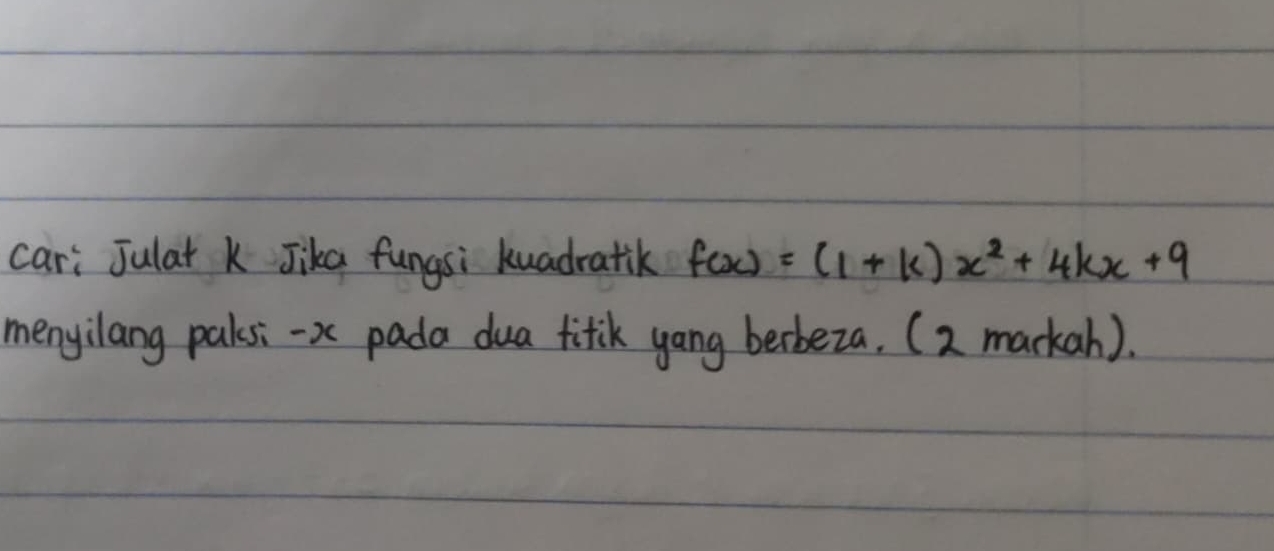 cari Julat k Jika fungsi kuadratik f(x) = (1 + k) x² + 4kx + 9
menyilang paksi -x pada dua titik yang berbeza. (2 markah).